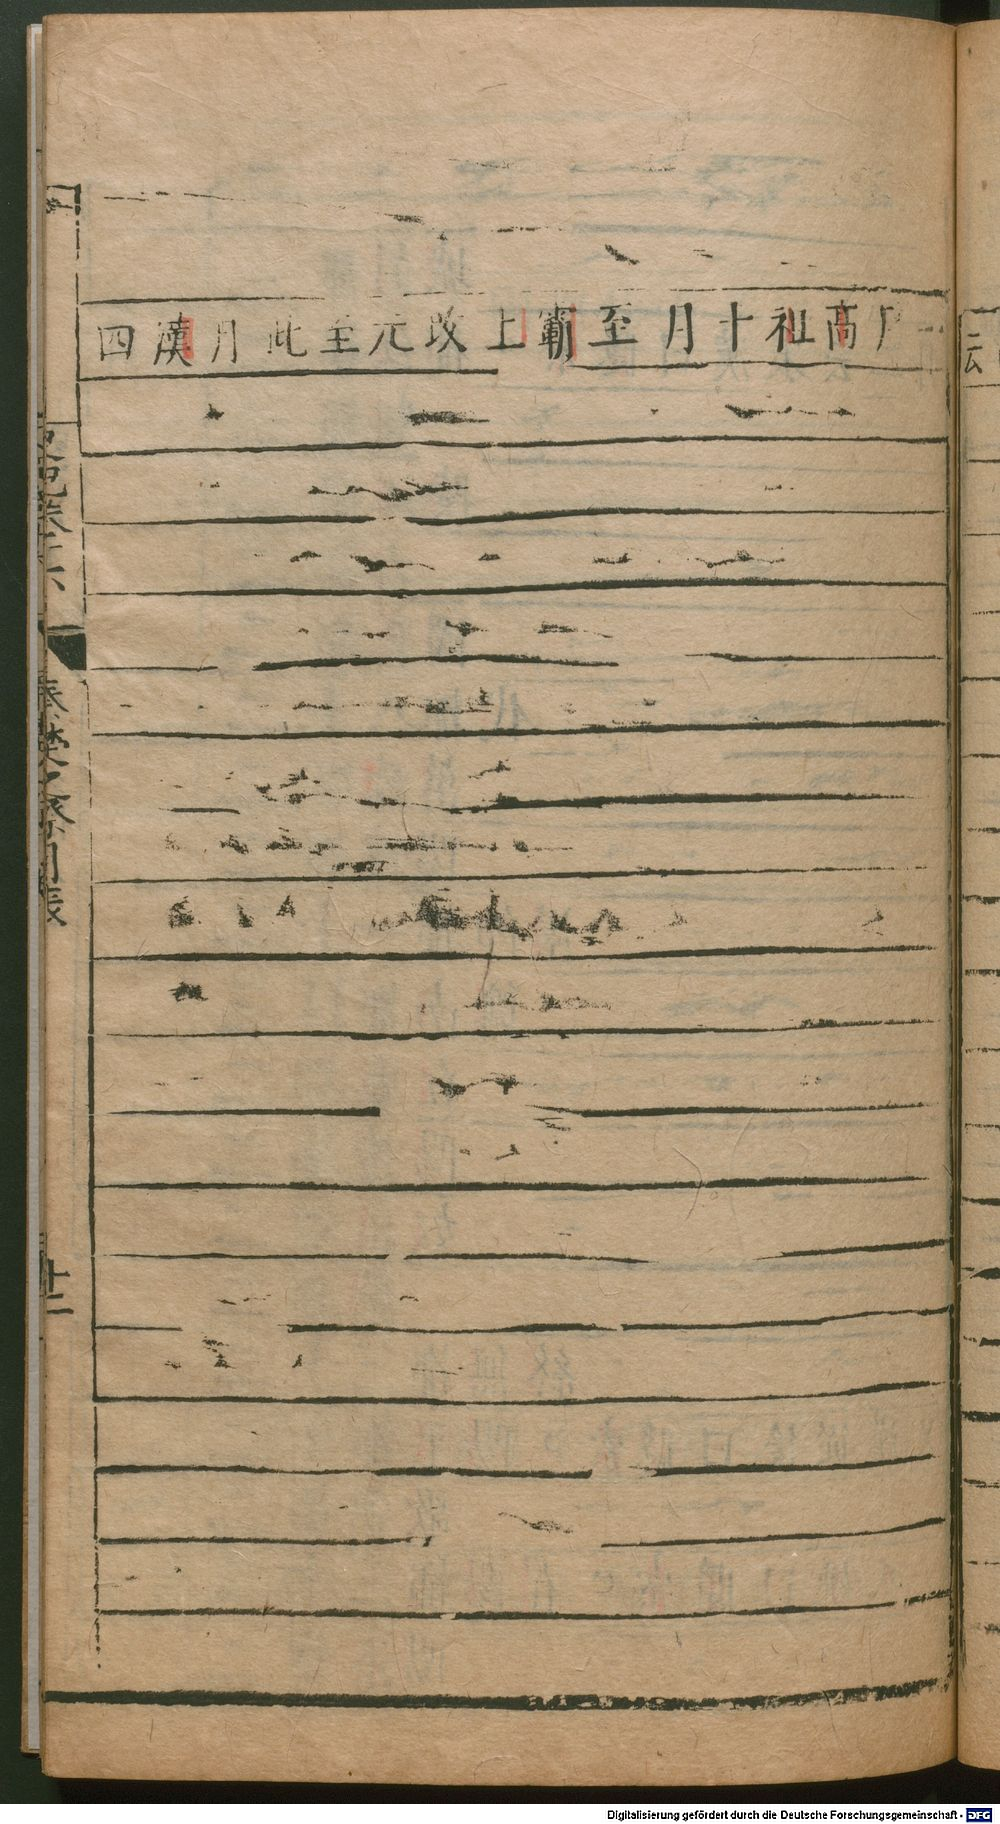 高祖十月至霸上改元至此月漢四
秦楚之際月表
十二
Digitalisierung gefördert durch die Deutsche Forschungsgemeinschaft - DFG